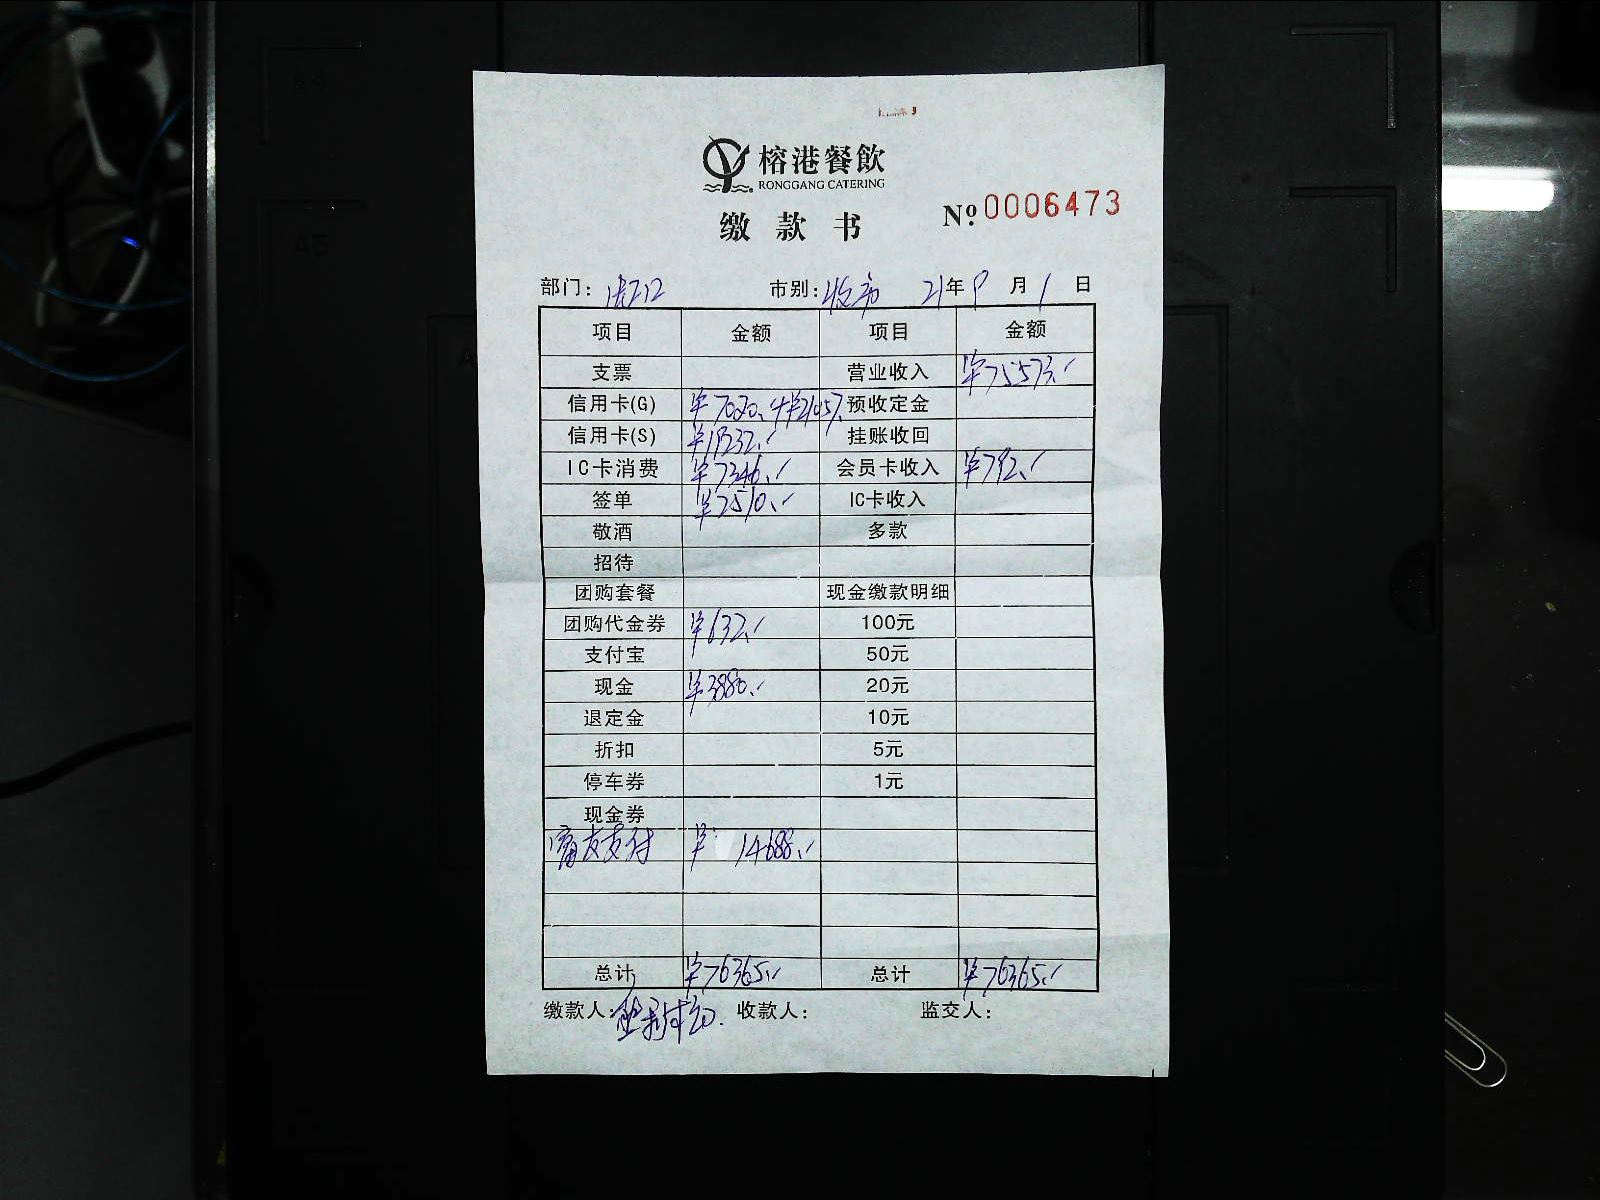 榕港餐飲
RONGGANG CATERING
缴款书 №0006473
部门: 市别:收市 21年9月1日
项目 金额 项目 金额
支票 营业收入 ¥75573.-
信用卡(G) ¥7020.-+¥21057. 预收定金
信用卡(S) ¥19232.- 挂账收回
IC卡消费 ¥7346.- 会员卡收入 ¥792.-
签单 ¥2510.- IC卡收入
敬酒 多款
招待
团购套餐 现金缴款明细
团购代金券 ¥632.- 100元
支付宝 50元
现金 ¥3880.- 20元
退定金 10元
折扣 5元
停车券 1元
现金券
支付 ¥14688.-
总计 ¥76365.- 总计 ¥76365.-
缴款人: 收款人: 监交人: